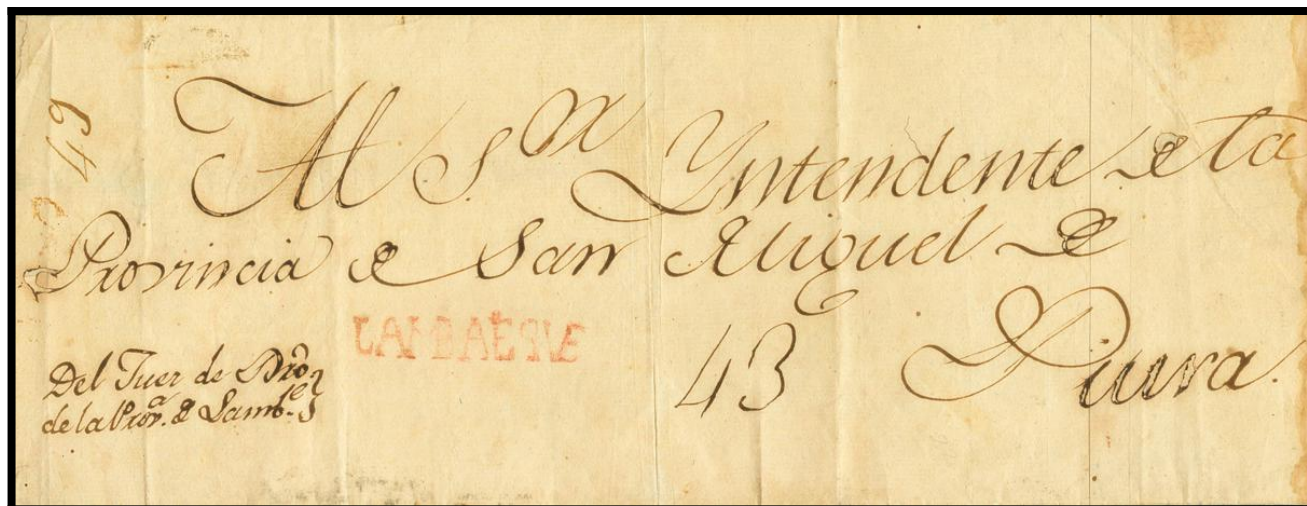 Al S.or Yntendente de la
Provincia de San Miguel de
Piura.
43
LAMBAEQVE
Del Juez de
de la Prov.a de Lamb.e
49